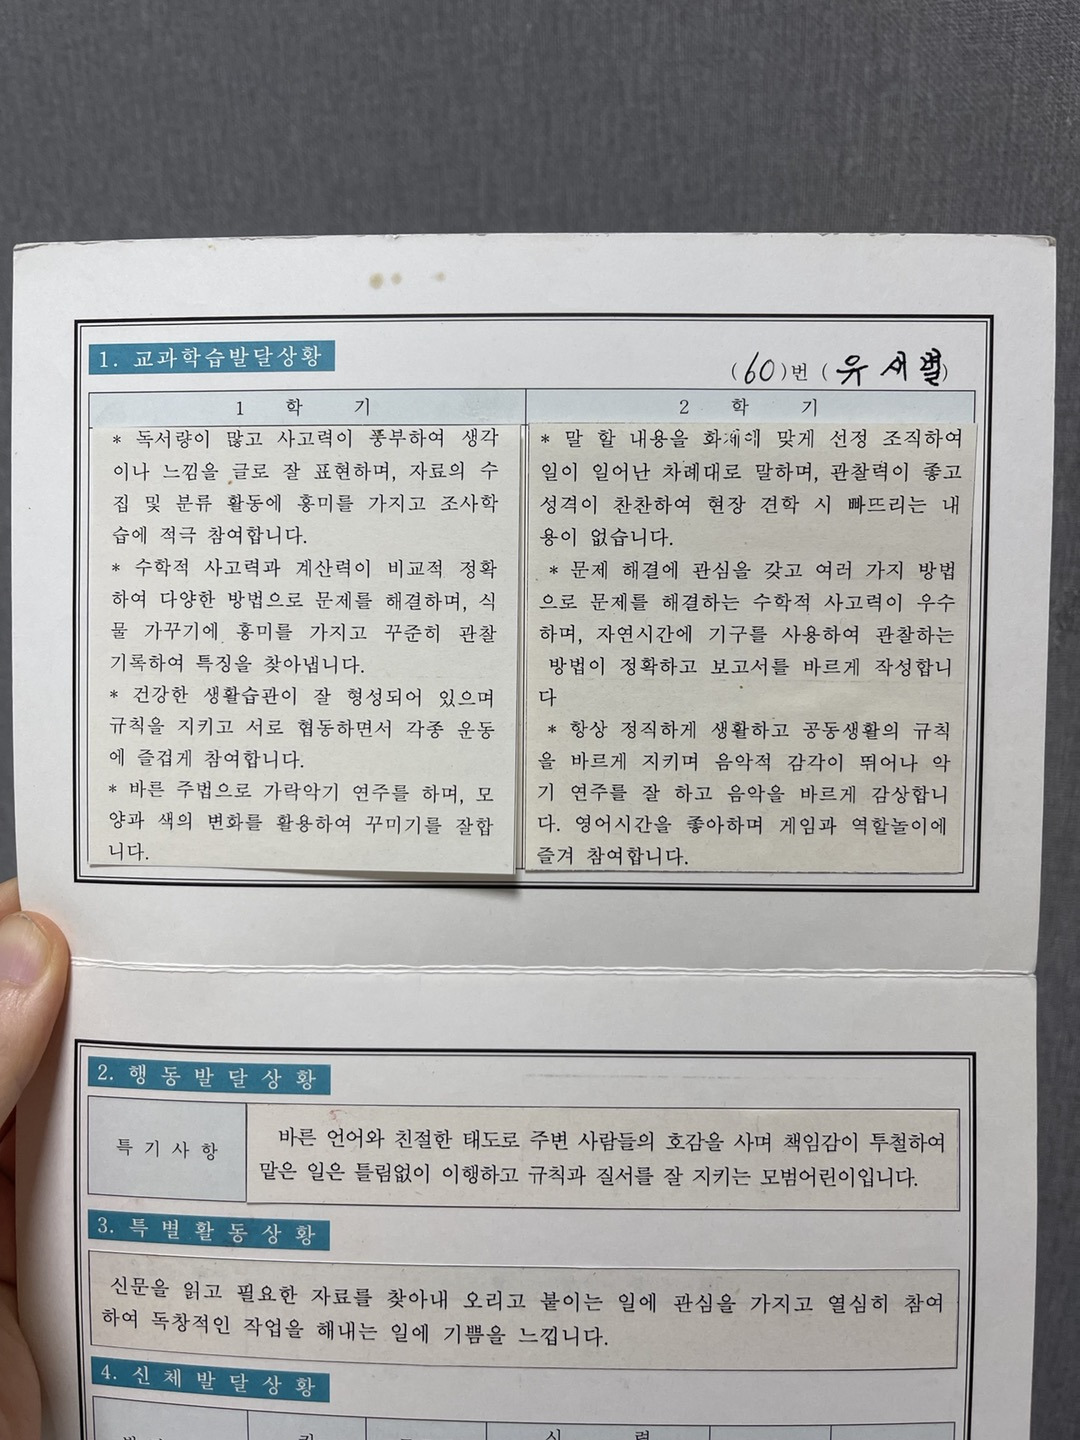 1. 교과학습발달상황
(60)번 (유새별)
1 학 기
2 학 기
* 독서량이 많고 사고력이 풍부하여 생각
이나 느낌을 글로 잘 표현하며, 자료의 수
집 및 분류 활동에 흥미를 가지고 조사학
습에 적극 참여합니다.
* 수학적 사고력과 계산력이 비교적 정확
하여 다양한 방법으로 문제를 해결하며, 식
물 가꾸기에 흥미를 가지고 꾸준히 관찰
기록하여 특징을 찾아냅니다.
* 건강한 생활습관이 잘 형성되어 있으며
규칙을 지키고 서로 협동하면서 각종 운동
에 즐겁게 참여합니다.
* 바른 주법으로 가락악기 연주를 하며, 모
양과 색의 변화를 활용하여 꾸미기를 잘합
니다.
* 말 할 내용을 화제에 맞게 선정 조직하여
일이 일어난 차례대로 말하며, 관찰력이 좋고
성격이 찬찬하여 현장 견학 시 빠뜨리는 내
용이 없습니다.
* 문제 해결에 관심을 갖고 여러 가지 방법
으로 문제를 해결하는 수학적 사고력이 우수
하며, 자연시간에 기구를 사용하여 관찰하는
방법이 정확하고 보고서를 바르게 작성합니
다
* 항상 정직하게 생활하고 공동생활의 규칙
을 바르게 지키며 음악적 감각이 뛰어나 악
기 연주를 잘 하고 음악을 바르게 감상합니
다. 영어시간을 좋아하며 게임과 역할놀이에
즐겨 참여합니다.
2. 행동발달상황
특기사항
바른 언어와 친절한 태도로 주변 사람들의 호감을 사며 책임감이 투철하여
맡은 일은 틀림없이 이행하고 규칙과 질서를 잘 지키는 모범어린이입니다.
3. 특별활동상황
신문을 읽고 필요한 자료를 찾아내 오리고 붙이는 일에 관심을 가지고 열심히 참여
하여 독창적인 작업을 해내는 일에 기쁨을 느낍니다.
4. 신체발달상황